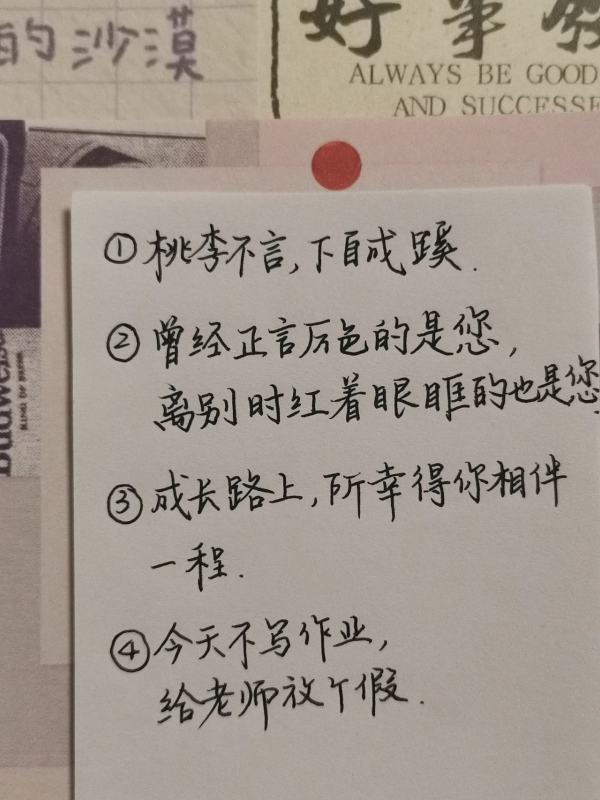 的沙漠
好事
ALWAYS BE GOOD
AND SUCCESSF
①桃李不言,下自成蹊.
②曾经正言厉色的是您,
离别时红着眼眶的也是您.
③成长路上,所幸得你相伴
一程.
④今天不写作业,
给老师放个假.
Budweiser
KING OF BEERS